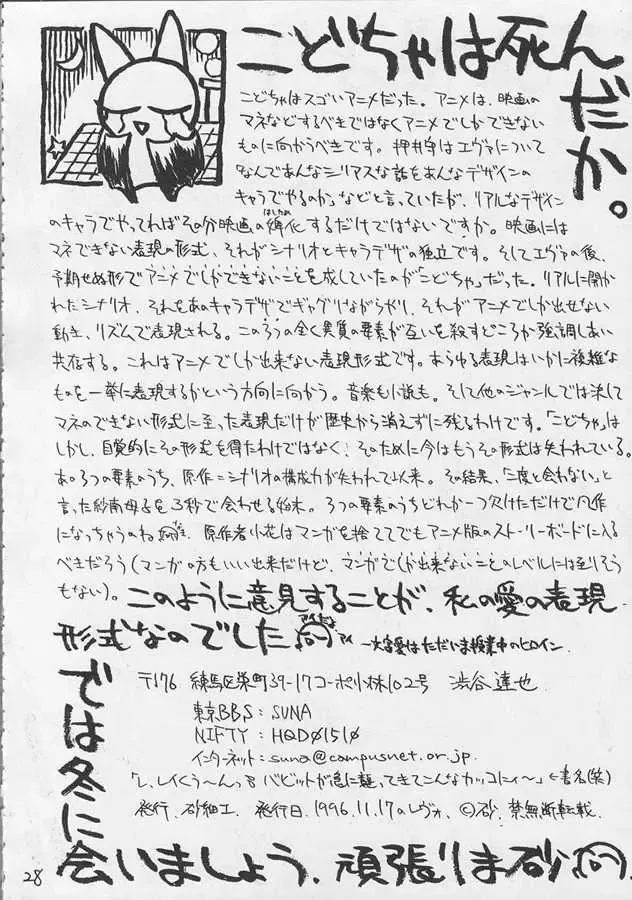 こどちゃは死んだか。
こどちゃはスゴいアニメだった。アニメは、映画の
マネなどするべきではなくアニメでしかできない
ものに向かうべきです。押井守はエヴァについて
「なんであんなシリアスな話をあんなデザインの
キャラでやるのか」などと言っていたが、リアルなデザイン
のキャラでやってればその分映画の婢化するだけではないですか。映画には
はしため
マネできない表現の形式、それがシナリオとキャラデザの独立です。そしてエヴァの後、
予期せぬ形でアニメでしかできないことを成していたのが「こどちゃ」だった。リアルに開か
れたシナリオ、それをあのキャラデザでギャグりながらやり、それがアニメでしか出せない
動き、リズムで表現される。この3つの全く異質の要素が互いを殺すどころか強調しあい
共存する。これはアニメでしか出来ない表現形式です。あらゆる表現はいかに複雑な
ものを一挙に表現するかという方向に向かう。音楽も小説も。そして他のジャンルでは決して
マネのできない形式に至った表現だけが歴史から消えずに残るわけです。「こどちゃ」は
しかし、自覚的にその形式を得たわけではなく、そのために今はもうその形式は失われている。
あの3つの要素のうち、原作=シナリオの構成力が失われて以来。その結果、「二度と会わない」と
言った紗南母子を3秒で会わせる始末。3つの要素のうちどれか一つ欠けただけで凡作
になっちゃうのね。原作者小花はマンガを捨ててでもアニメ版のストーリーボードに入る
べきだろう(マンガの方もいい出来だけど、マンガでしか出来ないことのレベルには至りそう
もない)。このように意見することが、私の愛の表現
形式なのでした
アイ
―大宮愛はただいま授業中のヒロイン
〒176 練馬区栄町39-17コーポ小林102号 渋谷達也
東京BBS：SUNA
NIFTY：HQD01510
インターネット：suna@campusnet.or.jp.
「レ、レイくう〜んっ8 バビットが急に襲ってきてこんなカッコにィ〜」←書名(笑)
発行、砂細工、発行日、1996.11.17のレヴォ、©砂、禁無断転載、
では冬に
会いましょう、頑張りま砂
28